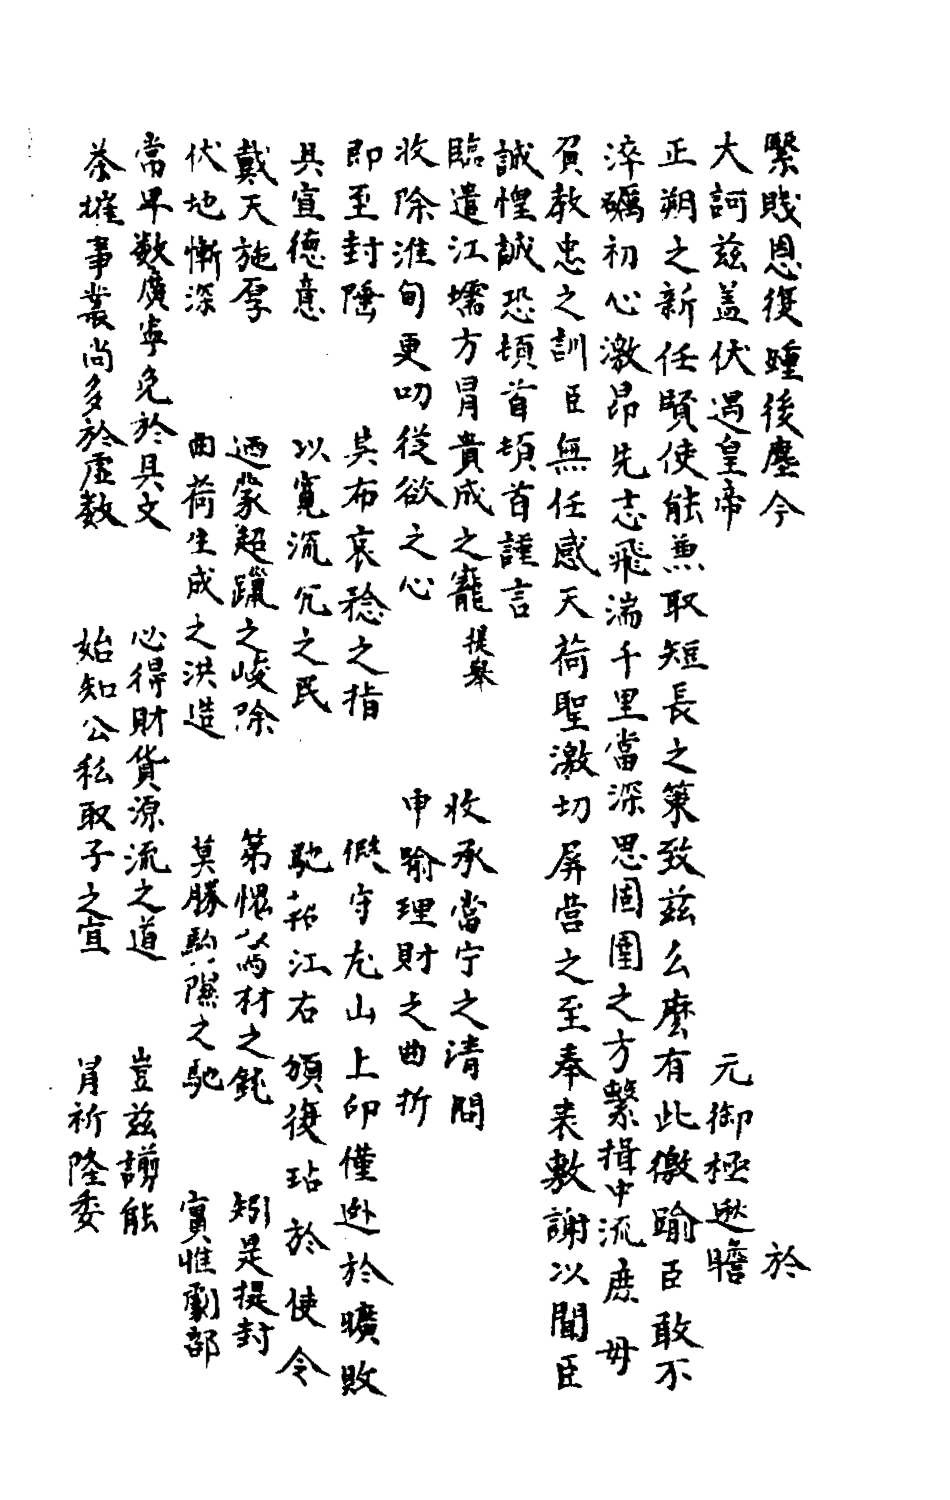 緊賤恩復踵後塵今於
大訶茲盖伏遇皇帝元御極遜瞻
正朔之新任賢使能兼取短長之策致茲么麼有此徼踰臣敢不
淬礪初心激昂先志飛湍千里當深思固圉之方繫揖中流庶毋
負教忠之訓臣無任感天荷聖激切屏营之至奉表敷謝以聞臣
誠惶誠恐頓首頓首謹言
臨遣江壖方冐貴成之寵提舉収承當宁之清問
收除淮甸更叨從欲之心申喻理財之曲折
即至封陲吴布哀矜之指假守尨山上印僅逊於曠敗
具宣德意以寛沉冗之民馳江右頒復玷於使令
戴天施厚迺蒙超躐之峻除第惧菲材之鈍矧是提封
伏地慚深曲荷生成之洪造莫勝駒隙之馳實惟劇部
當早数廣寧免於具文心得財貨源流之道豈茲謭能
茶㩁事叢尚多於虚数始知公私取予之宜肯祈隆委